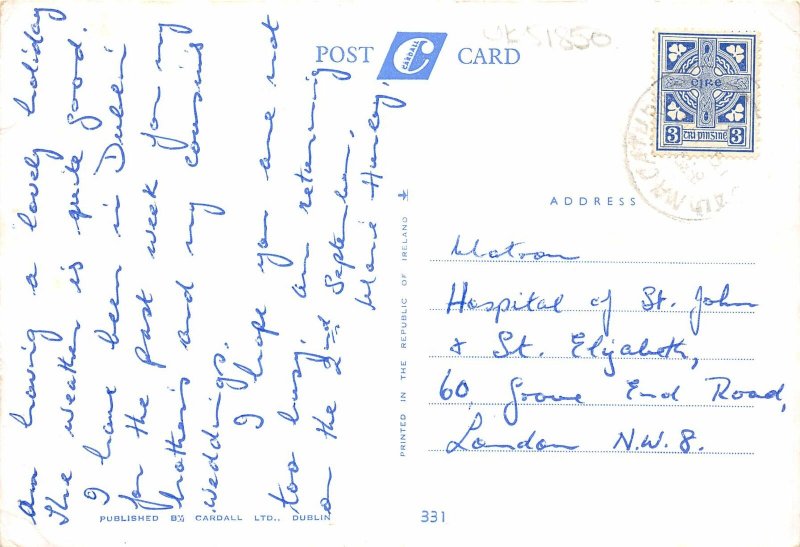 am having a lovely holiday
The weather is quite good.
I have been in Dublin
for the past week you my
brothers and my cousins
weddings.
I hope you are not
too busy, am returning
on the 2nd September.
Marie Hurley.
POST CARDALL CARD
UKS1850
EIRE
3 PINGINE 3
ADDRESS
Matron
Hospital of St. John
& St. Elizabeth,
60 Grove End Road,
London N.W.8.
PRINTED IN THE REPUBLIC OF IRELAND
PUBLISHED BY CARDALL LTD., DUBLIN
331